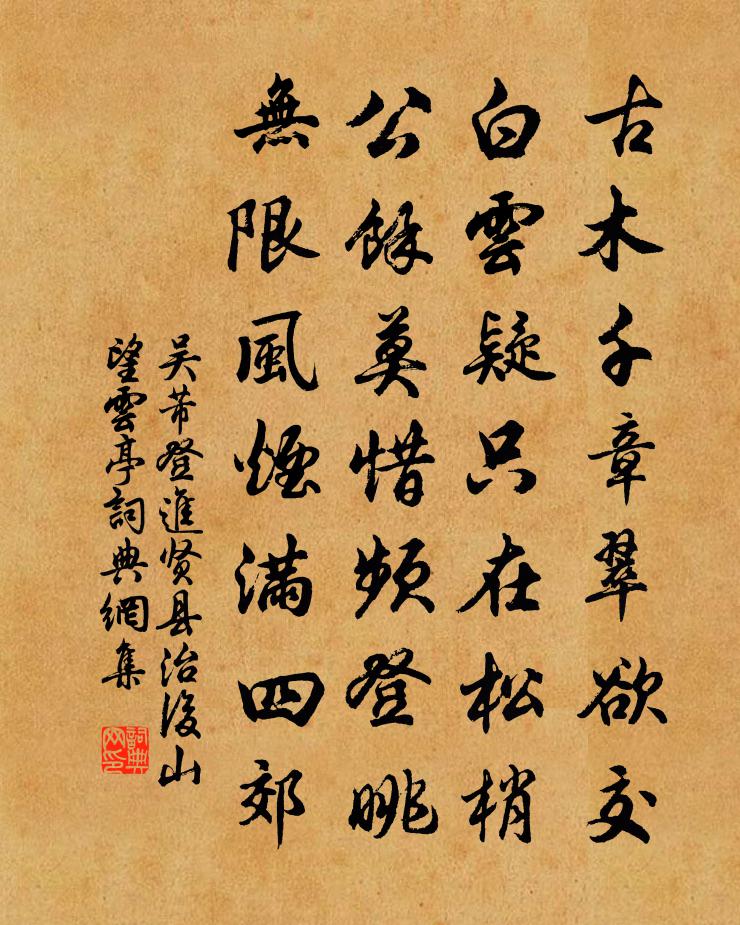 古木千章翠欲交
白雲疑只在松梢
公餘莫惜頻登眺
無限風煙滿四郊
吴芾登進贤县治後山
望雲亭詞典網集
詞典
网印